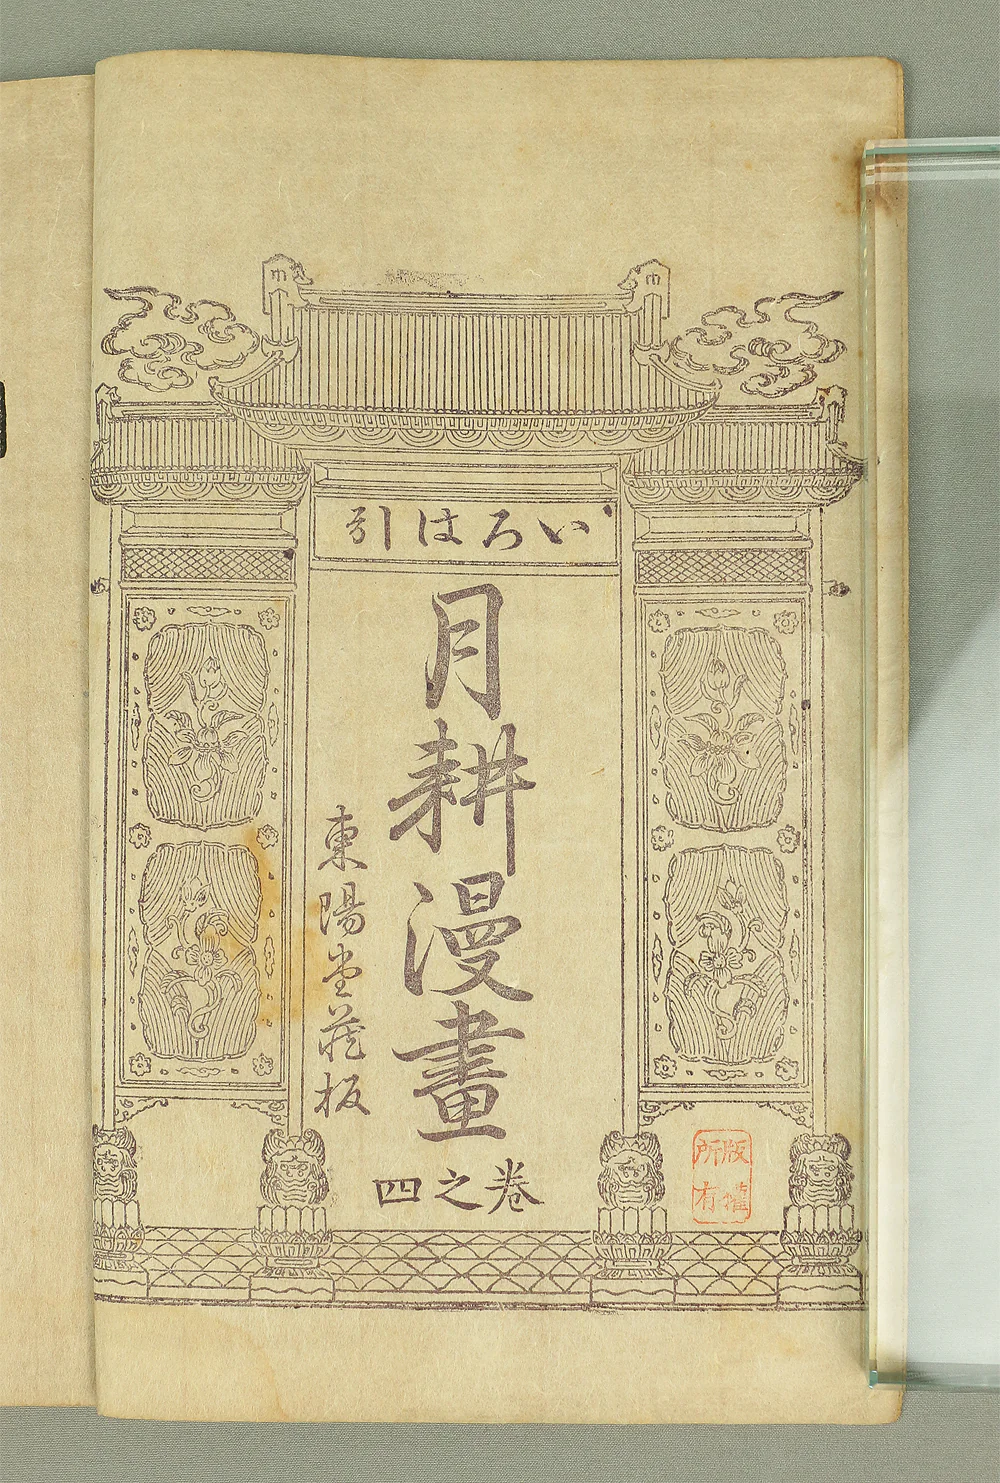 いろは引
月耕漫畫
卷之四
東陽堂蔵板
版權
所有